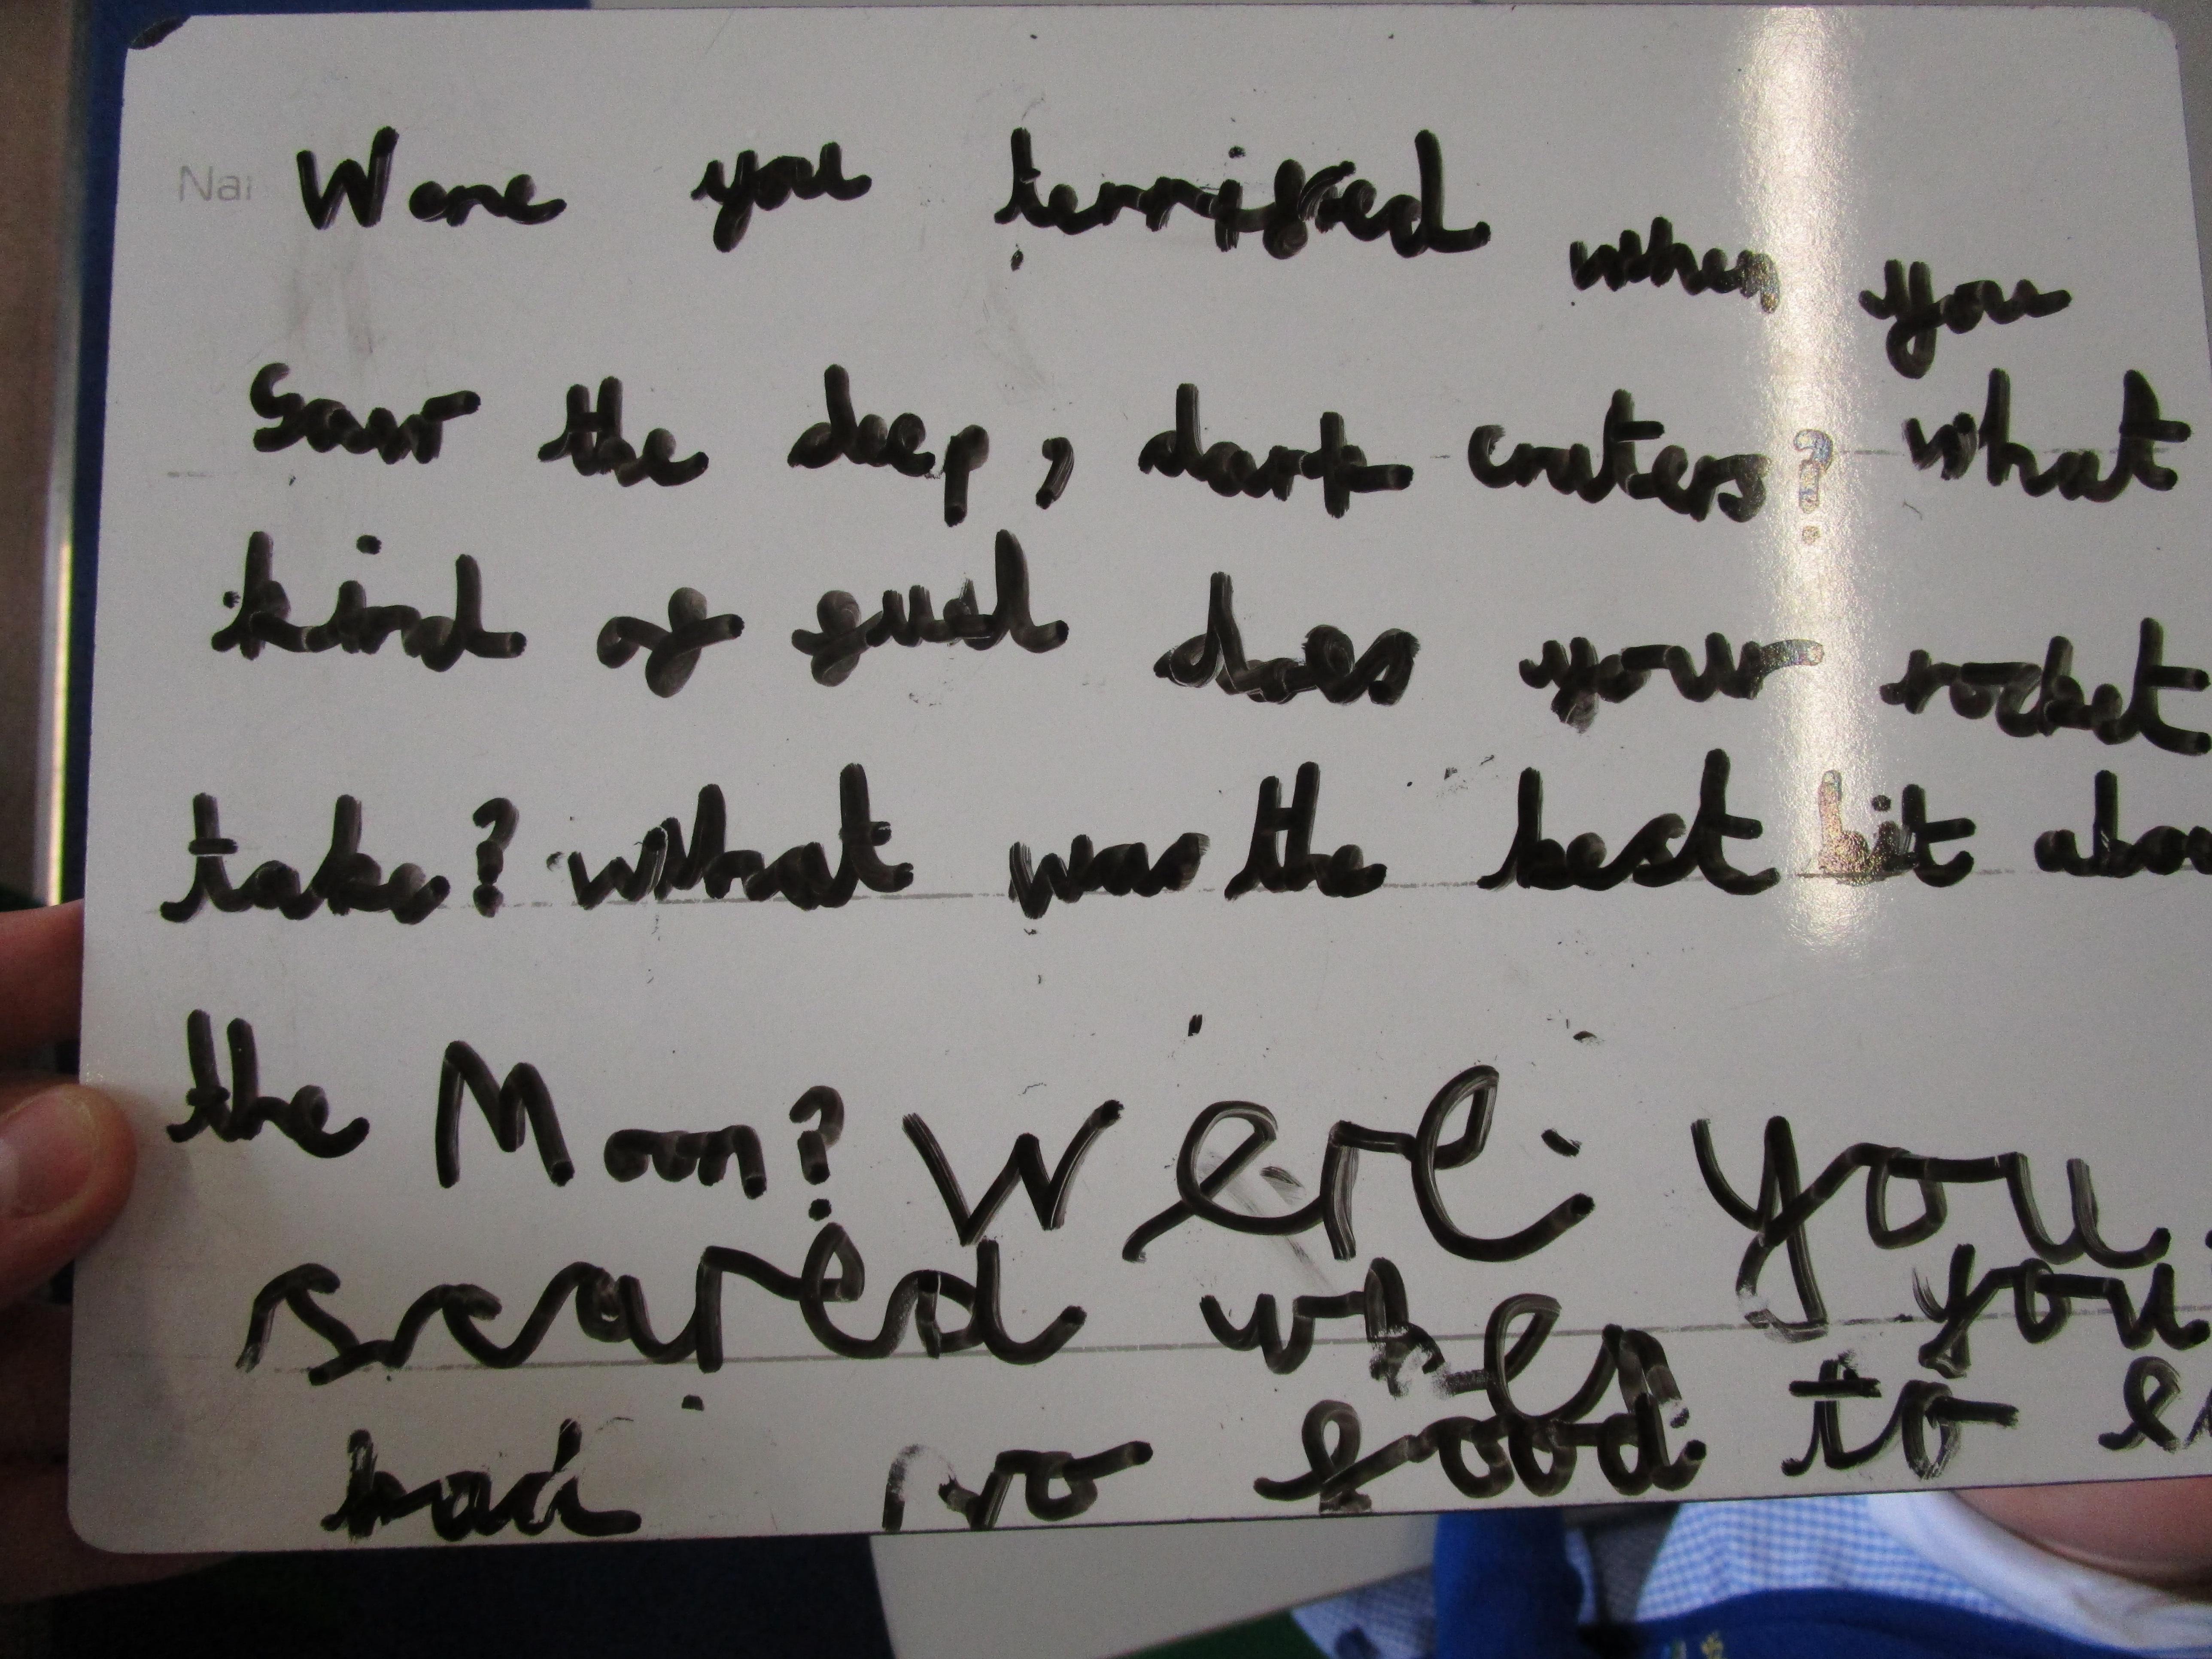 Nai
Were you terrified when you
saw the deep, dark craters? what
kind of fuel does your rocket
take? what was the best bit abou
the Moon? Were you
scared when you
had no food to e